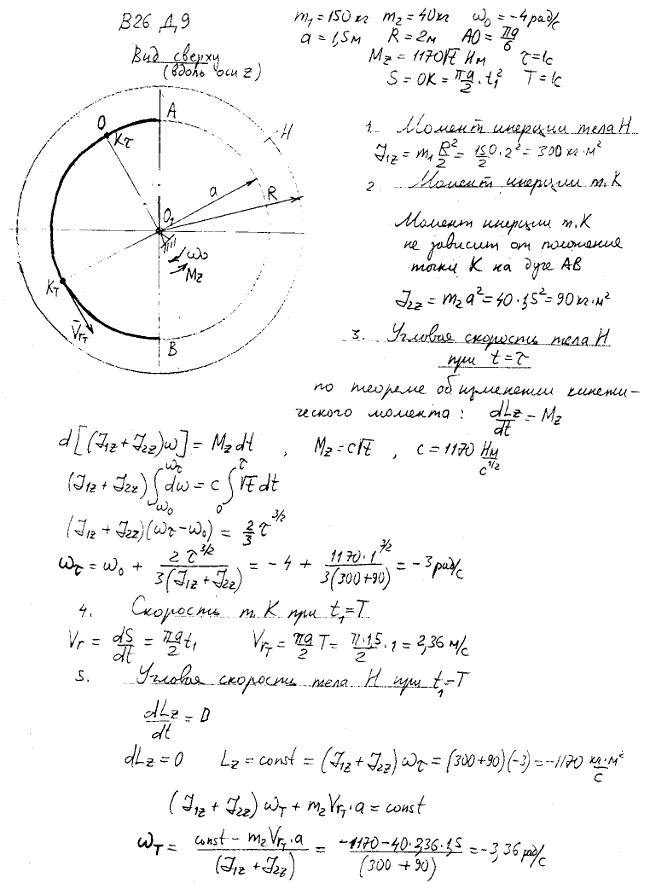 В26 Д.9
m₁=150кг m₂=40кг ω₀=-4рад/с
a=1,5м R=2м AO=πa/6
M_z=1170√t Нм τ=1с
S=OK=πa/2·t₁² T=1с
Вид сверху
(вдоль оси z)
A
O
K_τ
H
a
R
O₁
ω₀
M_z
K_T
V̄_rT
B
1. Момент инерции тела H
J₁z=m₁R²/2=150/2·2²=300кг·м²
2. Момент инерции т.K
Момент инерции т.K
не зависит от положения
точки K на дуге AB
J₂z=m₂a²=40·1,5²=90кг·м²
3. Угловая скорость тела H
при t=τ
по теореме об изменении кинети-
ческого момента: dLz/dt=Mz
d[(J₁z+J₂z)ω]=Mzdt , Mz=c√t , c=1170 Нм/с^1/2
(J₁z+J₂z)∫_ω₀^ω_τ dω=c∫_0^τ √t dt
(J₁z+J₂z)(ω_τ-ω₀)=2/3 τ^3/2
ω_τ=ω₀+2τ^3/2/3(J₁z+J₂z)=-4+1170·1^3/2/3(300+90)=-3рад/с
4. Скорость т.K при t₁=T
Vr=dS/dt=πa/2 t₁ V_rT=πa/2 T=π·1,5/2·1=2,36м/с
5. Угловая скорость тела H при t₁=T
dLz/dt=0
dLz=0 Lz=const=(J₁z+J₂z)ω_τ=(300+90)(-3)=-1170 кг·м²/с
(J₁z+J₂z)ω_T+m₂V_rT·a=const
ω_T=const-m₂V_rT·a/(J₁z+J₂z)=-1170-40·2,36·1,5/(300+90)=-3,36рад/с